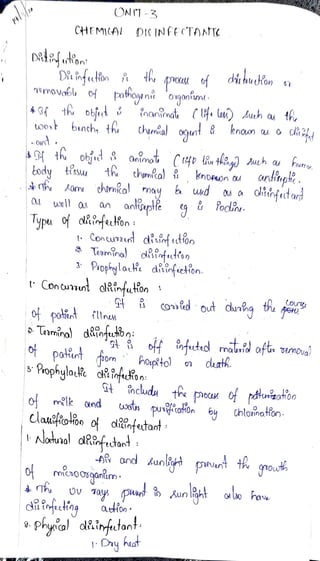 UNIT-3
CHEMICAL DISINFECTANTS
Disinfection:
Disinfection is the process of distruction or
removable of pathogenic organisms.
* If the object is inanimate (life less) such as the
work bench, the chemical agent is known as a disinfect
-ant.
* If the object is animate (life living things) such as human
body tissue the chemical is known as antiseptic.
* The same chemical may be used as a disinfectant
as well as an antiseptic eg is Iodine.
Types of disinfection:
1. Concurrent disinfection
2. Terminal disinfection
3. Prophylactic disinfection.
1. Concurrent disinfection:
It is carried out during the course
of patient illness
2. Terminal disinfection:
It is off infected material after removal
of patient from hospital or death.
3. Prophylactic disinfection:
It includes the process of pasturization
of milk and water purification by chlorination.
Classification of disinfectant:
1. Natural disinfectant:
-Air and sunlight prevent the growth
of microorganism.
* The UV rays present in sunlight also have
disinfecting action.
2. physical disinfectant:
1. Dry heat